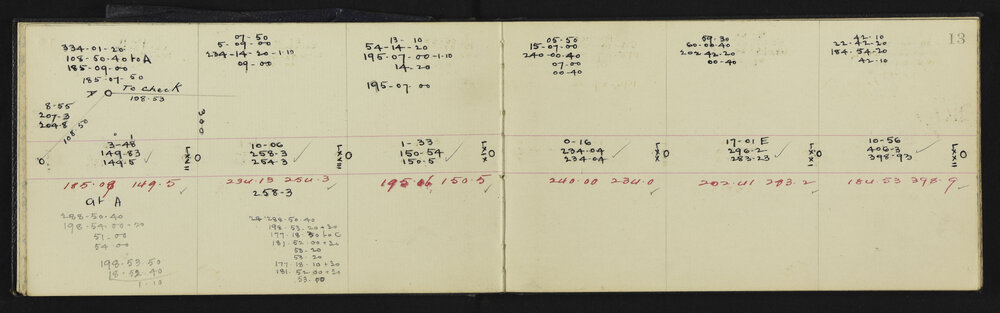 13
334-01-20
108-50-40 to A
185-09-00
185-07-50
To check
108-53
8-55
207-3
204-8
108-50
300
3-48
149-83
149-5
185.03 149.5
at A
288-50-40
198-54-00-20
51-00
54-00
198-53-50
18-52-40
1-10
07-50
5-09-00
234-14-20-1-10
09-00
10-06
258-3
254-3
234.13 254.3
258-3
24 288-50-40
198-53-20+20
177-18-30 to C
181-52-00+20
53-20
53-20
177-18-10+20
181-52-00+20
53-00
13-10
54-14-20
195-07-00-1-10
14-20
195-07-00
1-33
150-54
150-5
195.06 150.5
05-50
15-07-00
240-00-40
07-00
00-40
0-16
234-04
234-04
240.00 234.0
59-30
60-00-40
202-42-20
00-40
17-01 E
296-2
283-23
202.41 283.2
42-10
22-42-20
184-54-20
42-10
10-56
406-3
398-93
184.53 398.9